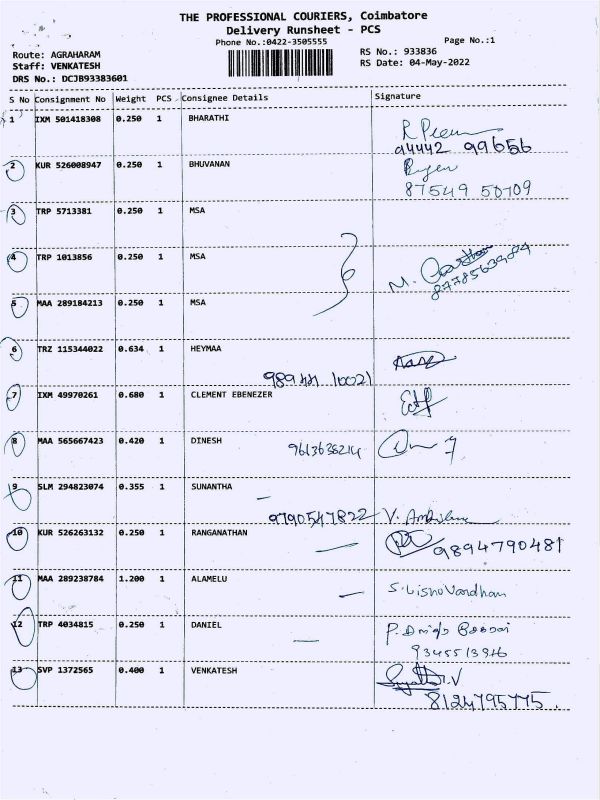 THE PROFESSIONAL COURIERS, Coimbatore
Delivery Runsheet - PCS
Phone No.:0422-3505555
Page No.:1
Route: AGRAHARAM
Staff: VENKATESH
DRS No.: DCJB93383601
RS No.: 933836
RS Date: 04-May-2022
S No Consignment No Weight PCS Consignee Details Signature
1 IXM 501418308 0.250 1 BHARATHI
94442 99656
2 KUR 526008947 0.250 1 BHUVANAN
87549 50709
3 TRP 5713381 0.250 1 MSA
4 TRP 1013856 0.250 1 MSA
M.
5 MAA 289184213 0.250 1 MSA
6 TRZ 115344022 0.634 1 HEYMAA
7 IXM 49970261 0.680 1 CLEMENT EBENEZER
8 MAA 565667423 0.420 1 DINESH
9613636214
9 SLM 294823074 0.355 1 SUNANTHA
9790547822 V.
10 KUR 526263132 0.250 1 RANGANATHAN
9894790481
11 MAA 289238784 1.200 1 ALAMELU
S. Vishnu Vardhan
12 TRP 4034815 0.250 1 DANIEL
P.
9345513916
13 SVP 1372565 0.400 1 VENKATESH
8124795775.